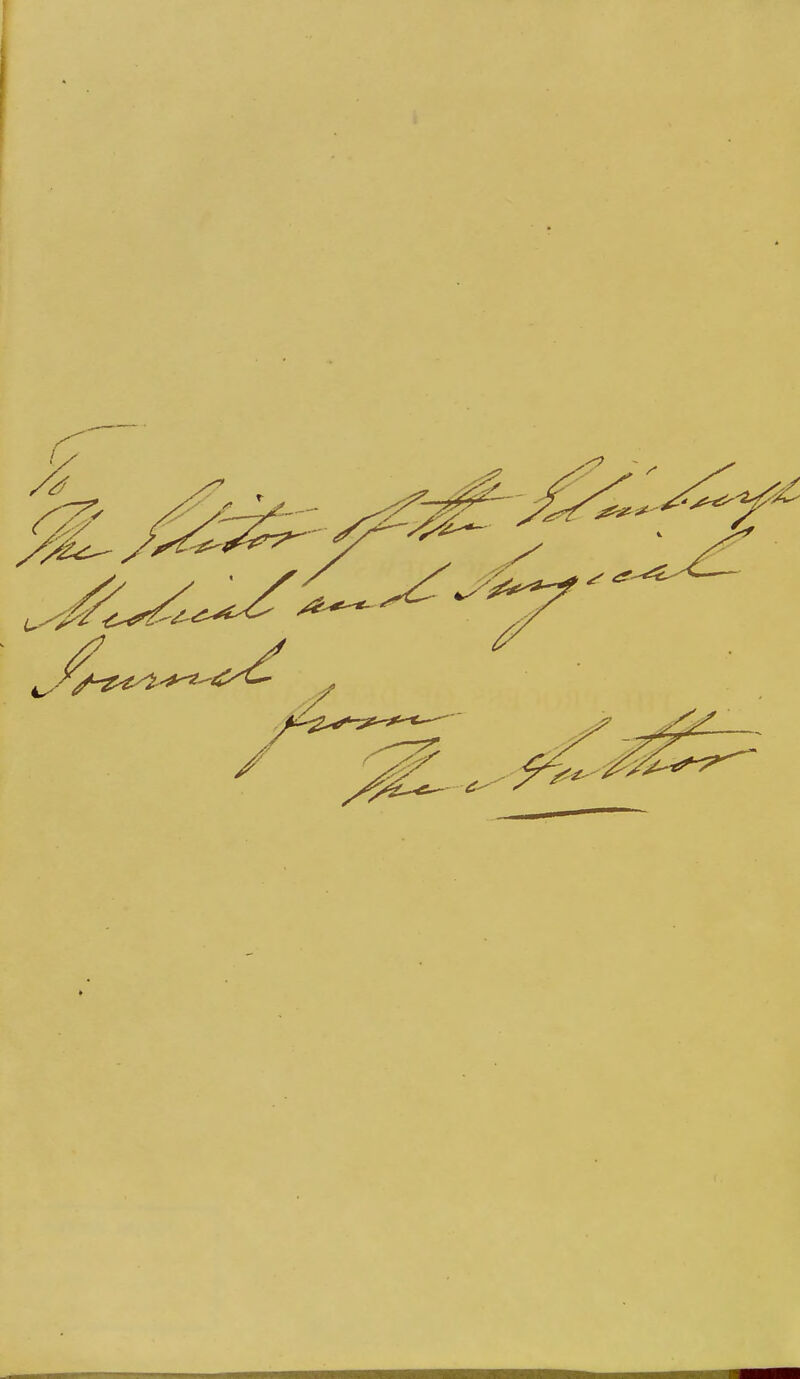 To
The Editor of the Edinburgh
Medical and Surgical
Journal
from
The Author